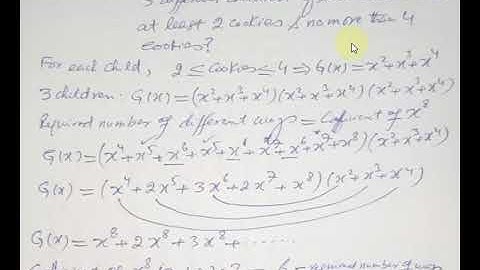 3 different children
at least 2 cookies & no more than 4
cookies?
For each child, 2 ≤ cookies ≤ 4 ⇒ G(x) = x²+x³+x⁴
3 children. G(x) = (x²+x³+x⁴)(x²+x³+x⁴)(x²+x³+x⁴)
Required number of different ways = Coefficient of x⁸
G(x) = (x⁴+x⁵+x⁶+x⁵+x⁶+x⁷+x⁶+x⁷+x⁸)(x²+x³+x⁴)
G(x) = (x⁴+2x⁵+3x⁶+2x⁷+x⁸)(x²+x³+x⁴)
G(x) = x⁸+2x⁸+3x⁸+ ......
= 6 = required number of ways